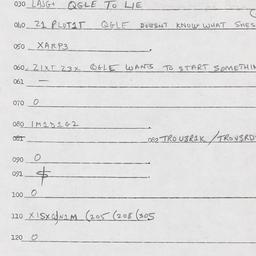 030 LAJG+ QGLE TO LIE
040 21 PLUT1T QGLE DOESNT KNOW WHAT SHES
050 XARP3
060 ZIXT 23X QGLE WANTS TO START SOMETHIN
061 —
070 0
080 1M1D1G2
081 082 TROUBR1K / TROUBRD
090 0
091 $
100 0
110 (205 (208 (305
120 0